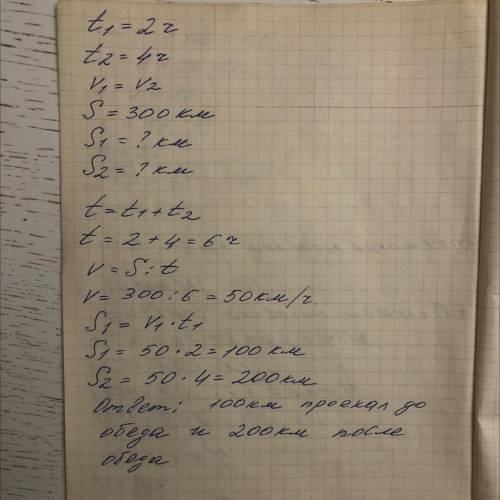 t1 = 2 ч
t2 = 4 ч
V1 = V2
S = 300 км
S1 = ? км
S2 = ? км
t = t1 + t2
t = 2 + 4 = 6 ч
V = S : t
V = 300 : 6 = 50 км/ч.
S1 = V1 · t1
S1 = 50 · 2 = 100 км
S2 = 50 · 4 = 200 км
Ответ: 100 км проехал до
обеда и 200 км после
обеда